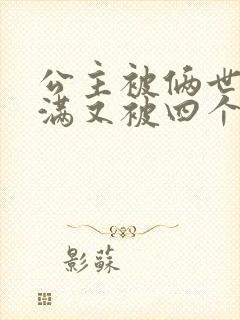 公主被俩世
满又被四个
影蘇